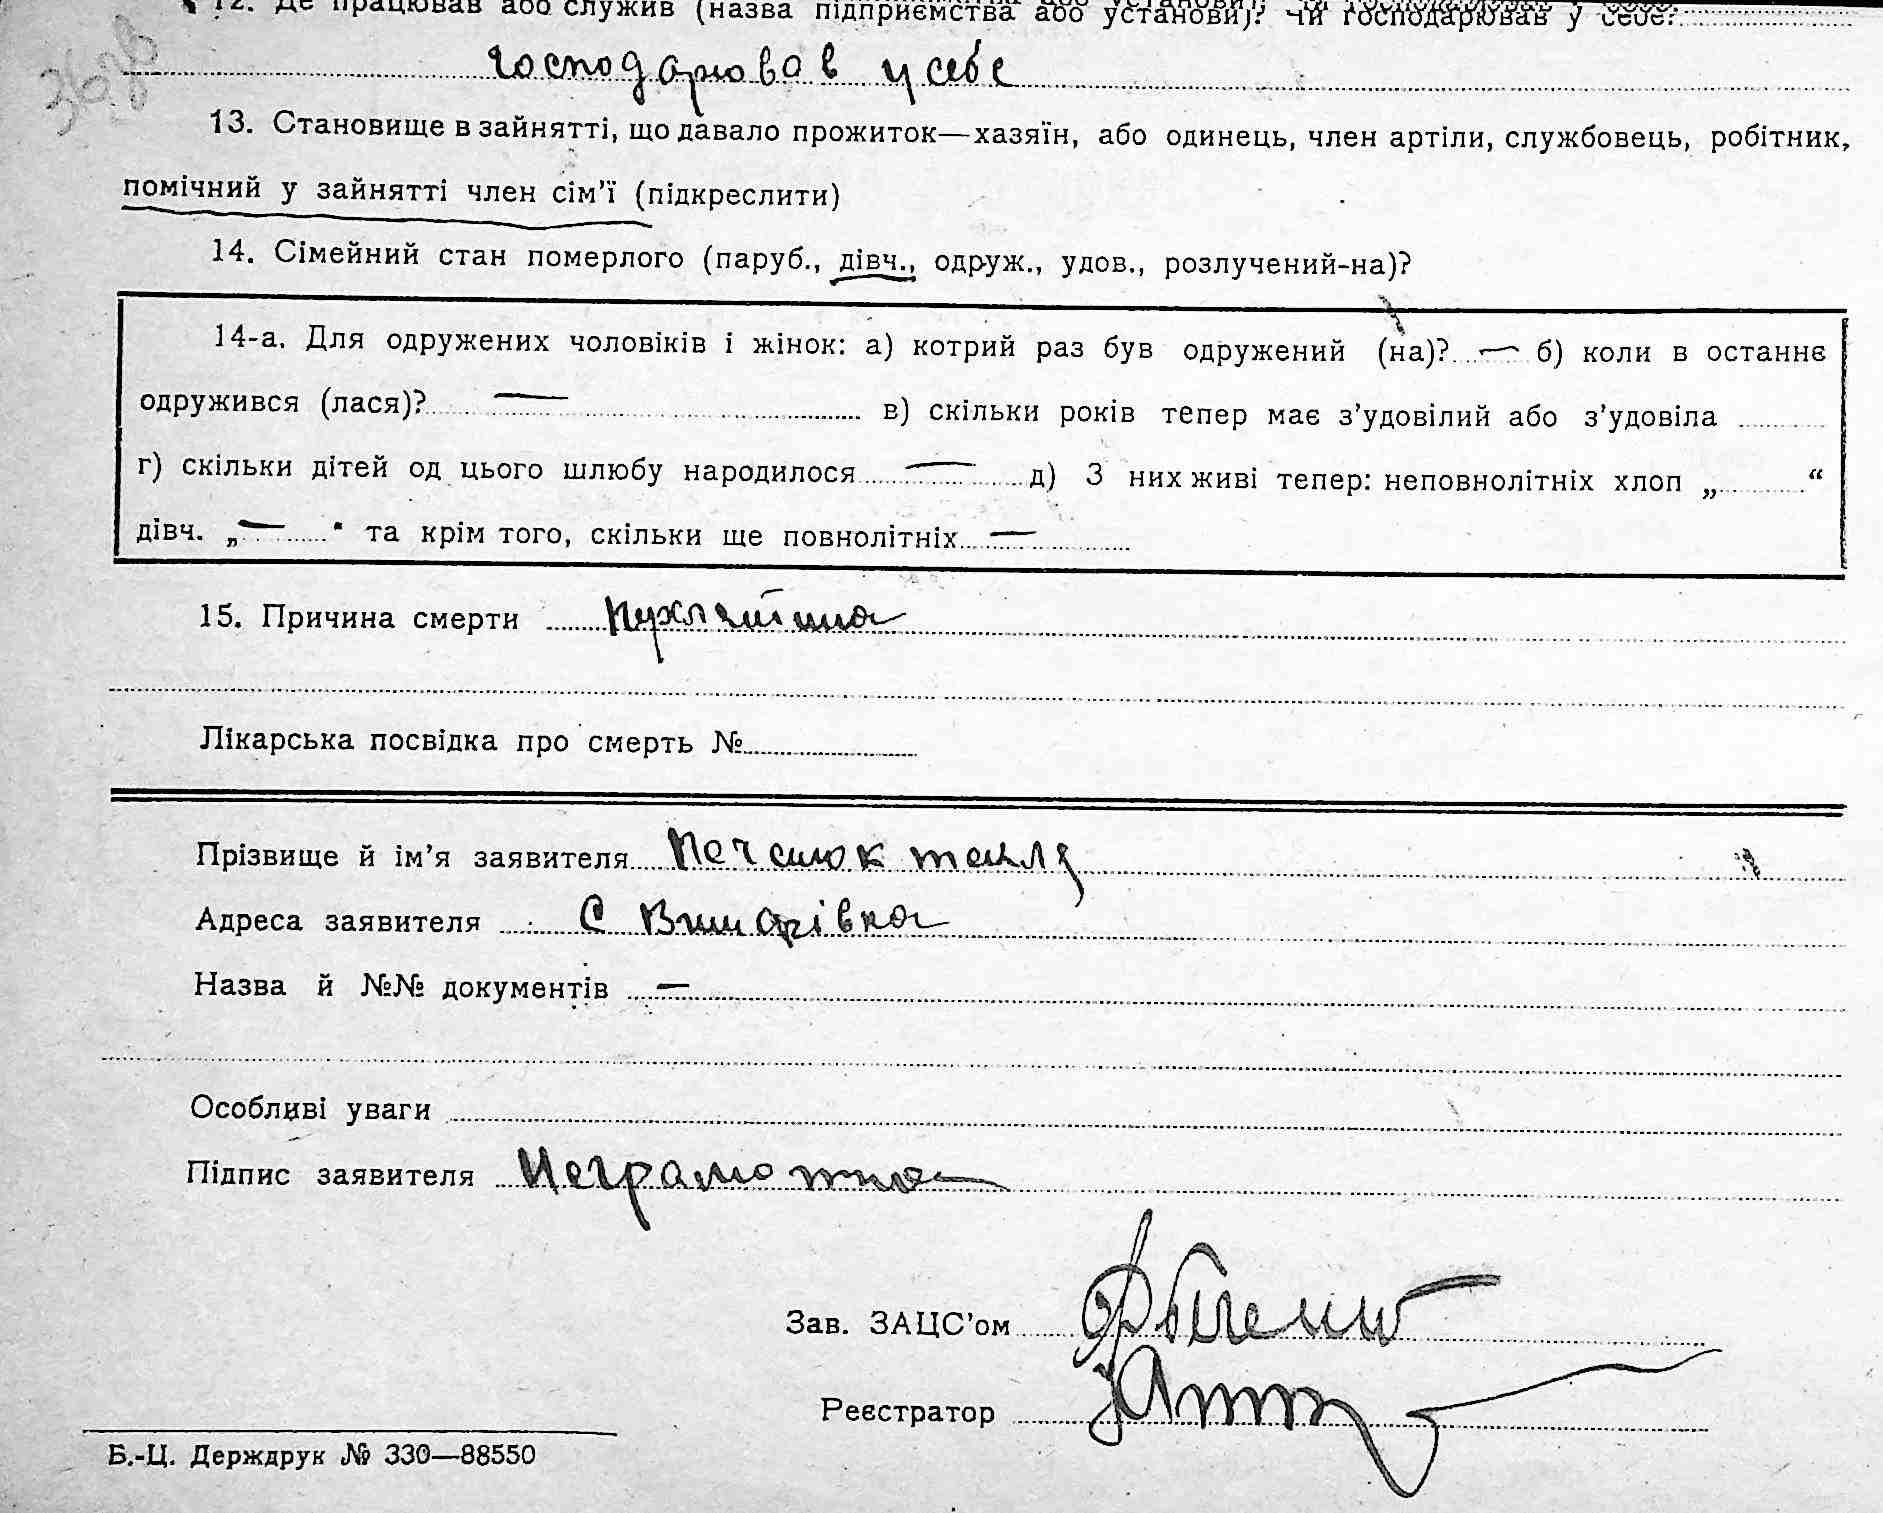 12. Де працював або служив (назва підприємства або установи)? Чи господарював у себе?
господарював у себе
13. Становище в зайнятті, що давало прожиток—хазяїн, або одинець, член артіли, службовець, робітник,
помічний у зайнятті член сім’ї (підкреслити)
14. Сімейний стан померлого (паруб., дівч., одруж., удов., розлучений-на)?
14-а. Для одружених чоловіків і жінок: а) котрий раз був одружений (на)? — б) коли в останнє
одружився (лася)? — в) скільки років тепер має з’удовілий або з’удовіла
г) скільки дітей од цього шлюбу народилося — д) З них живі тепер: неповнолітніх хлоп „ “
дівч. „— “ та крім того, скільки ще повнолітніх —
15. Причина смерти
Лікарська посвідка про смерть №
Прізвище й ім’я заявителя
Адреса заявителя С
Назва й №№ документів —
Особливі уваги
Підпис заявителя Неграмотна
Зав. ЗАЦС’ом
Реєстратор
Б.-Ц. Держдрук № 330—88550